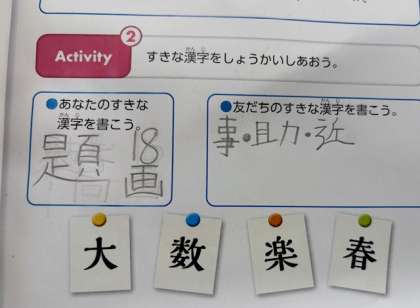 Activity 2 すきな漢字をしょうかいしあおう。
●あなたのすきな
漢字を書こう。
題 18画
●友だちのすきな漢字を書こう。
事・助・近
大 数 楽 春